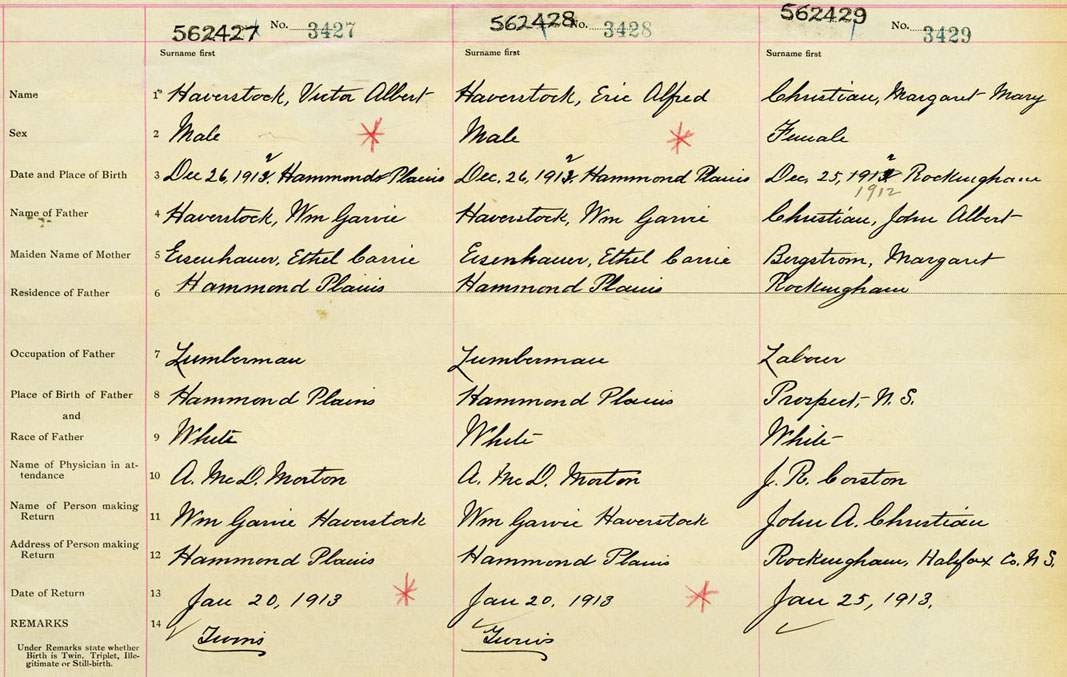 562427 No. 3427 562428 No. 3428 562429 No. 3429
Surname first Surname first Surname first
Name 1 Haverstock, Victor Albert Haverstock, Eric Alfred Christian, Margaret Mary
Sex 2 Male Male Female
Date and Place of Birth 3 Dec 26, 1912. Hammonds Plains Dec. 26, 1912. Hammond Plains Dec. 25, 1912 Rockingham
1912
Name of Father 4 Haverstock, Wm Garvie Haverstock, Wm Garvie Christian, John Albert
Maiden Name of Mother 5 Eisenhauer, Ethel Carrie Eisenhauer, Ethel Carrie Bergstrom, Margaret
Residence of Father 6 Hammond Plains Hammond Plains Rockingham
Occupation of Father 7 Lumberman Lumberman Labour
Place of Birth of Father 8 Hammond Plains Hammond Plains Prospect, N. S.
and
Race of Father 9 White White White
Name of Physician in at-
tendance 10 A. McD. Morton A. McD. Morton J. R. Corston
Name of Person making
Return 11 Wm Garvie Haverstock Wm Garvie Haverstock John A. Christian
Address of Person making
Return 12 Hammond Plains Hammond Plains Rockingham, Halifax Co. N S.
Date of Return 13 Jan 20, 1913 Jan 20, 1913 Jan 25, 1913.
REMARKS 14 Twins Twins
Under Remarks state whether
Birth is Twin, Triplet, Ille-
gitimate or Still-birth.